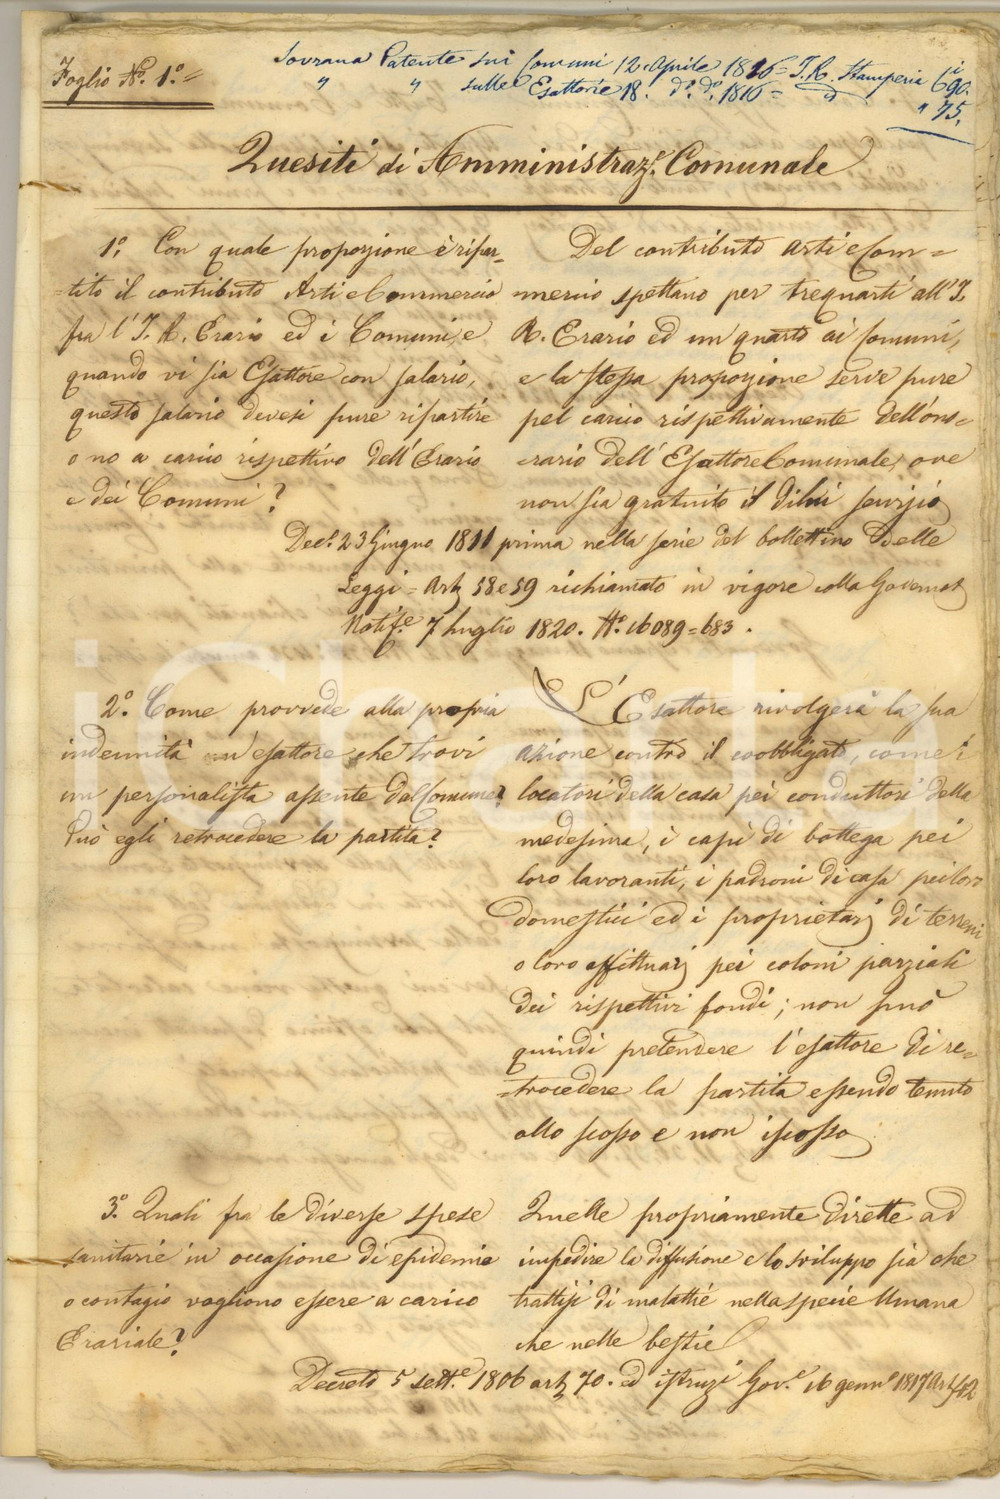 Foglio N.º 1.º
Sovrana Patente sui Comuni 12. Aprile 1816 = I. R. Stamperia £ 690.
" " sulle Esattorie 18. d.º d.º 1816 = " 75.
Quesiti di Amministraz.e Comunale
1.º Con quale proporzione è ripar-
tito il contributo Arti e Commercio
fra l'I. R. Erario ed i Comuni, e
quando vi sia Esattore con salario,
questo salario devesi pure ripartire
o no a carico rispettivo dell'Erario
e dei Comuni?
Del contributo Arti e Com=
mercio spettano per trequarti all'I.
R. Erario ed un quarto ai Comuni,
e la stessa proporzione serve pure
pel carico rispettivamente dell'ono-
rario dell'Esattore Comunale, ove
non sia gratuito il di lui servizio
Dec.º 23 Giugno 1811 prima nella serie del bollettino delle
Leggi = Art. 58 e 59 richiamato in vigore colla Governat.
Notif.e 7 Luglio 1820. N.º 16089=683.
2.º Come provvede alla propria
indennità un'esattore che trovi
un personalista assente dal Comune?
Può egli retrocedere la partita?
L'Esattore rivolgerà la sua
azione contro il coobbligato, come i
locatori della casa pei conduttori della
medesima, i capi di bottega pei
loro lavoranti, i padroni di casa pei loro
domestici ed i proprietarj di terreni
o loro affittuarj pei coloni parziali
dei rispettivi fondi; non può
quindi pretendere l'esattore di re=
=trocedere la partita essendo tenuto
allo scosso e non iscosso
3.º Quali fra le diverse spese
sanitarie in occasione di epidemia
o contagio vogliono essere a carico
Erariale?
Quelle propriamente dirette ad
impedire la diffusione e lo sviluppo sia che
trattisi di malattie nella specie Umana
che nelle bestie
Decreto 5 sett.e 1806 art. 70. ed istruzi Gov.e 16 genn.o 1817 Art. 42